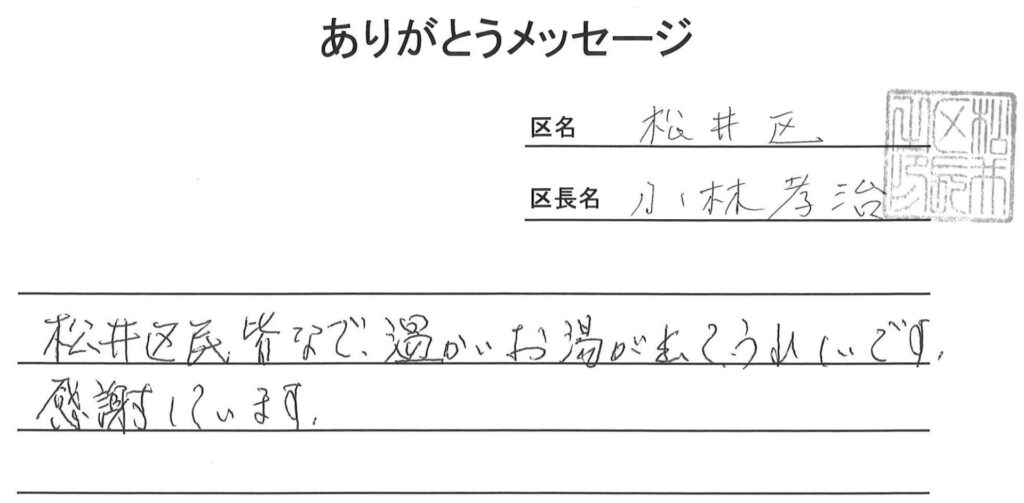 ありがとうメッセージ
区名 松井区
区長名 小林孝治
松井区長之印
松井区民皆なで、温かいお湯が出てうれしいです。
感謝しています。